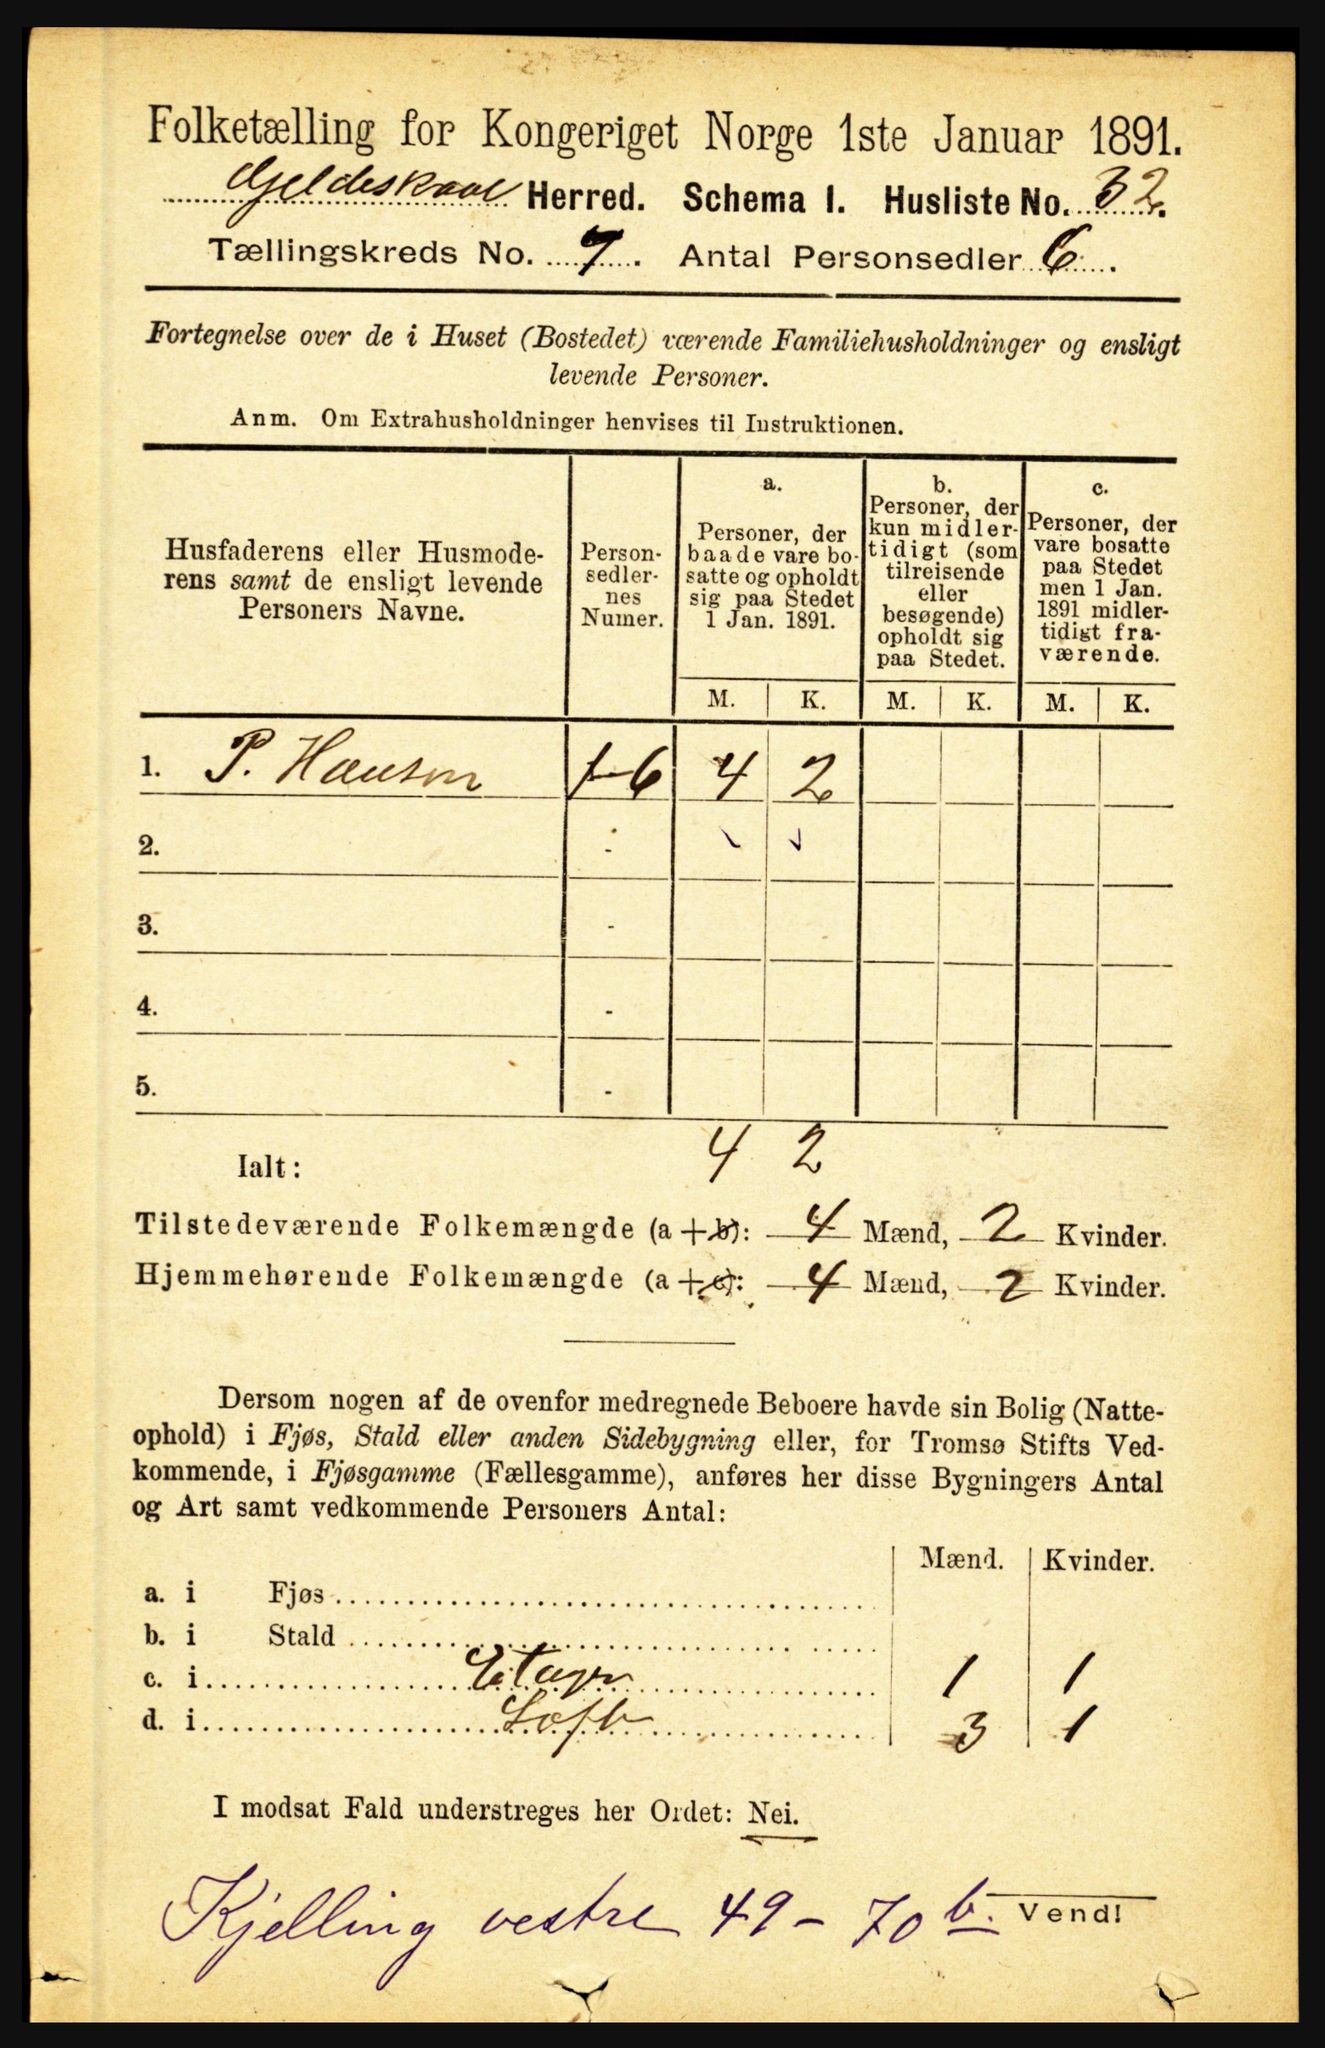 Folketælling for Kongeriget Norge 1ste Januar 1891.
Gjeldeskaal Herred. Schema I. Husliste No. 32.
Tællingskreds No. 7. Antal Personsedler 6.
Fortegnelse over de i Huset (Bostedet) værende Familiehusholdninger og ensligt
levende Personer.
Anm. Om Extrahusholdninger henvises til Instruktionen.
Husfaderens eller Husmode-
rens samt de ensligt levende
Personers Navne.
Person-
sedler-
nes
Numer.
a.
Personer, der
baade vare bo-
satte og opholdt
sig paa Stedet
1 Jan. 1891.
b.
Personer, der
kun midler-
tidigt (som
tilreisende
eller
besøgende)
opholdt sig
paa Stedet.
c.
Personer, der
vare bosatte
paa Stedet
men 1 Jan.
1891 midler-
tidigt fra-
værende.
M. K. M. K. M. K.
1. P. Hansen 1-6 4 2
2. -
3. -
4. -
5. -
4 2
Ialt:
Tilstedeværende Folkemængde (a + b): 4 Mænd, 2 Kvinder.
Hjemmehørende Folkemængde (a + c): 4 Mænd, 2 Kvinder.
Dersom nogen af de ovenfor medregnede Beboere havde sin Bolig (Natte-
ophold) i Fjøs, Stald eller anden Sidebygning eller, for Tromsø Stifts Ved-
kommende, i Fjøsgamme (Fællesgamme), anføres her disse Bygningers Antal
og Art samt vedkommende Personers Antal:
Mænd. Kvinder.
a. i Fjøs
b. i Stald
c. i 1 1
d. i Loft 3 1
I modsat Fald understreges her Ordet: Nei.
Kjelling vestre 49 - 70 b. Vend!